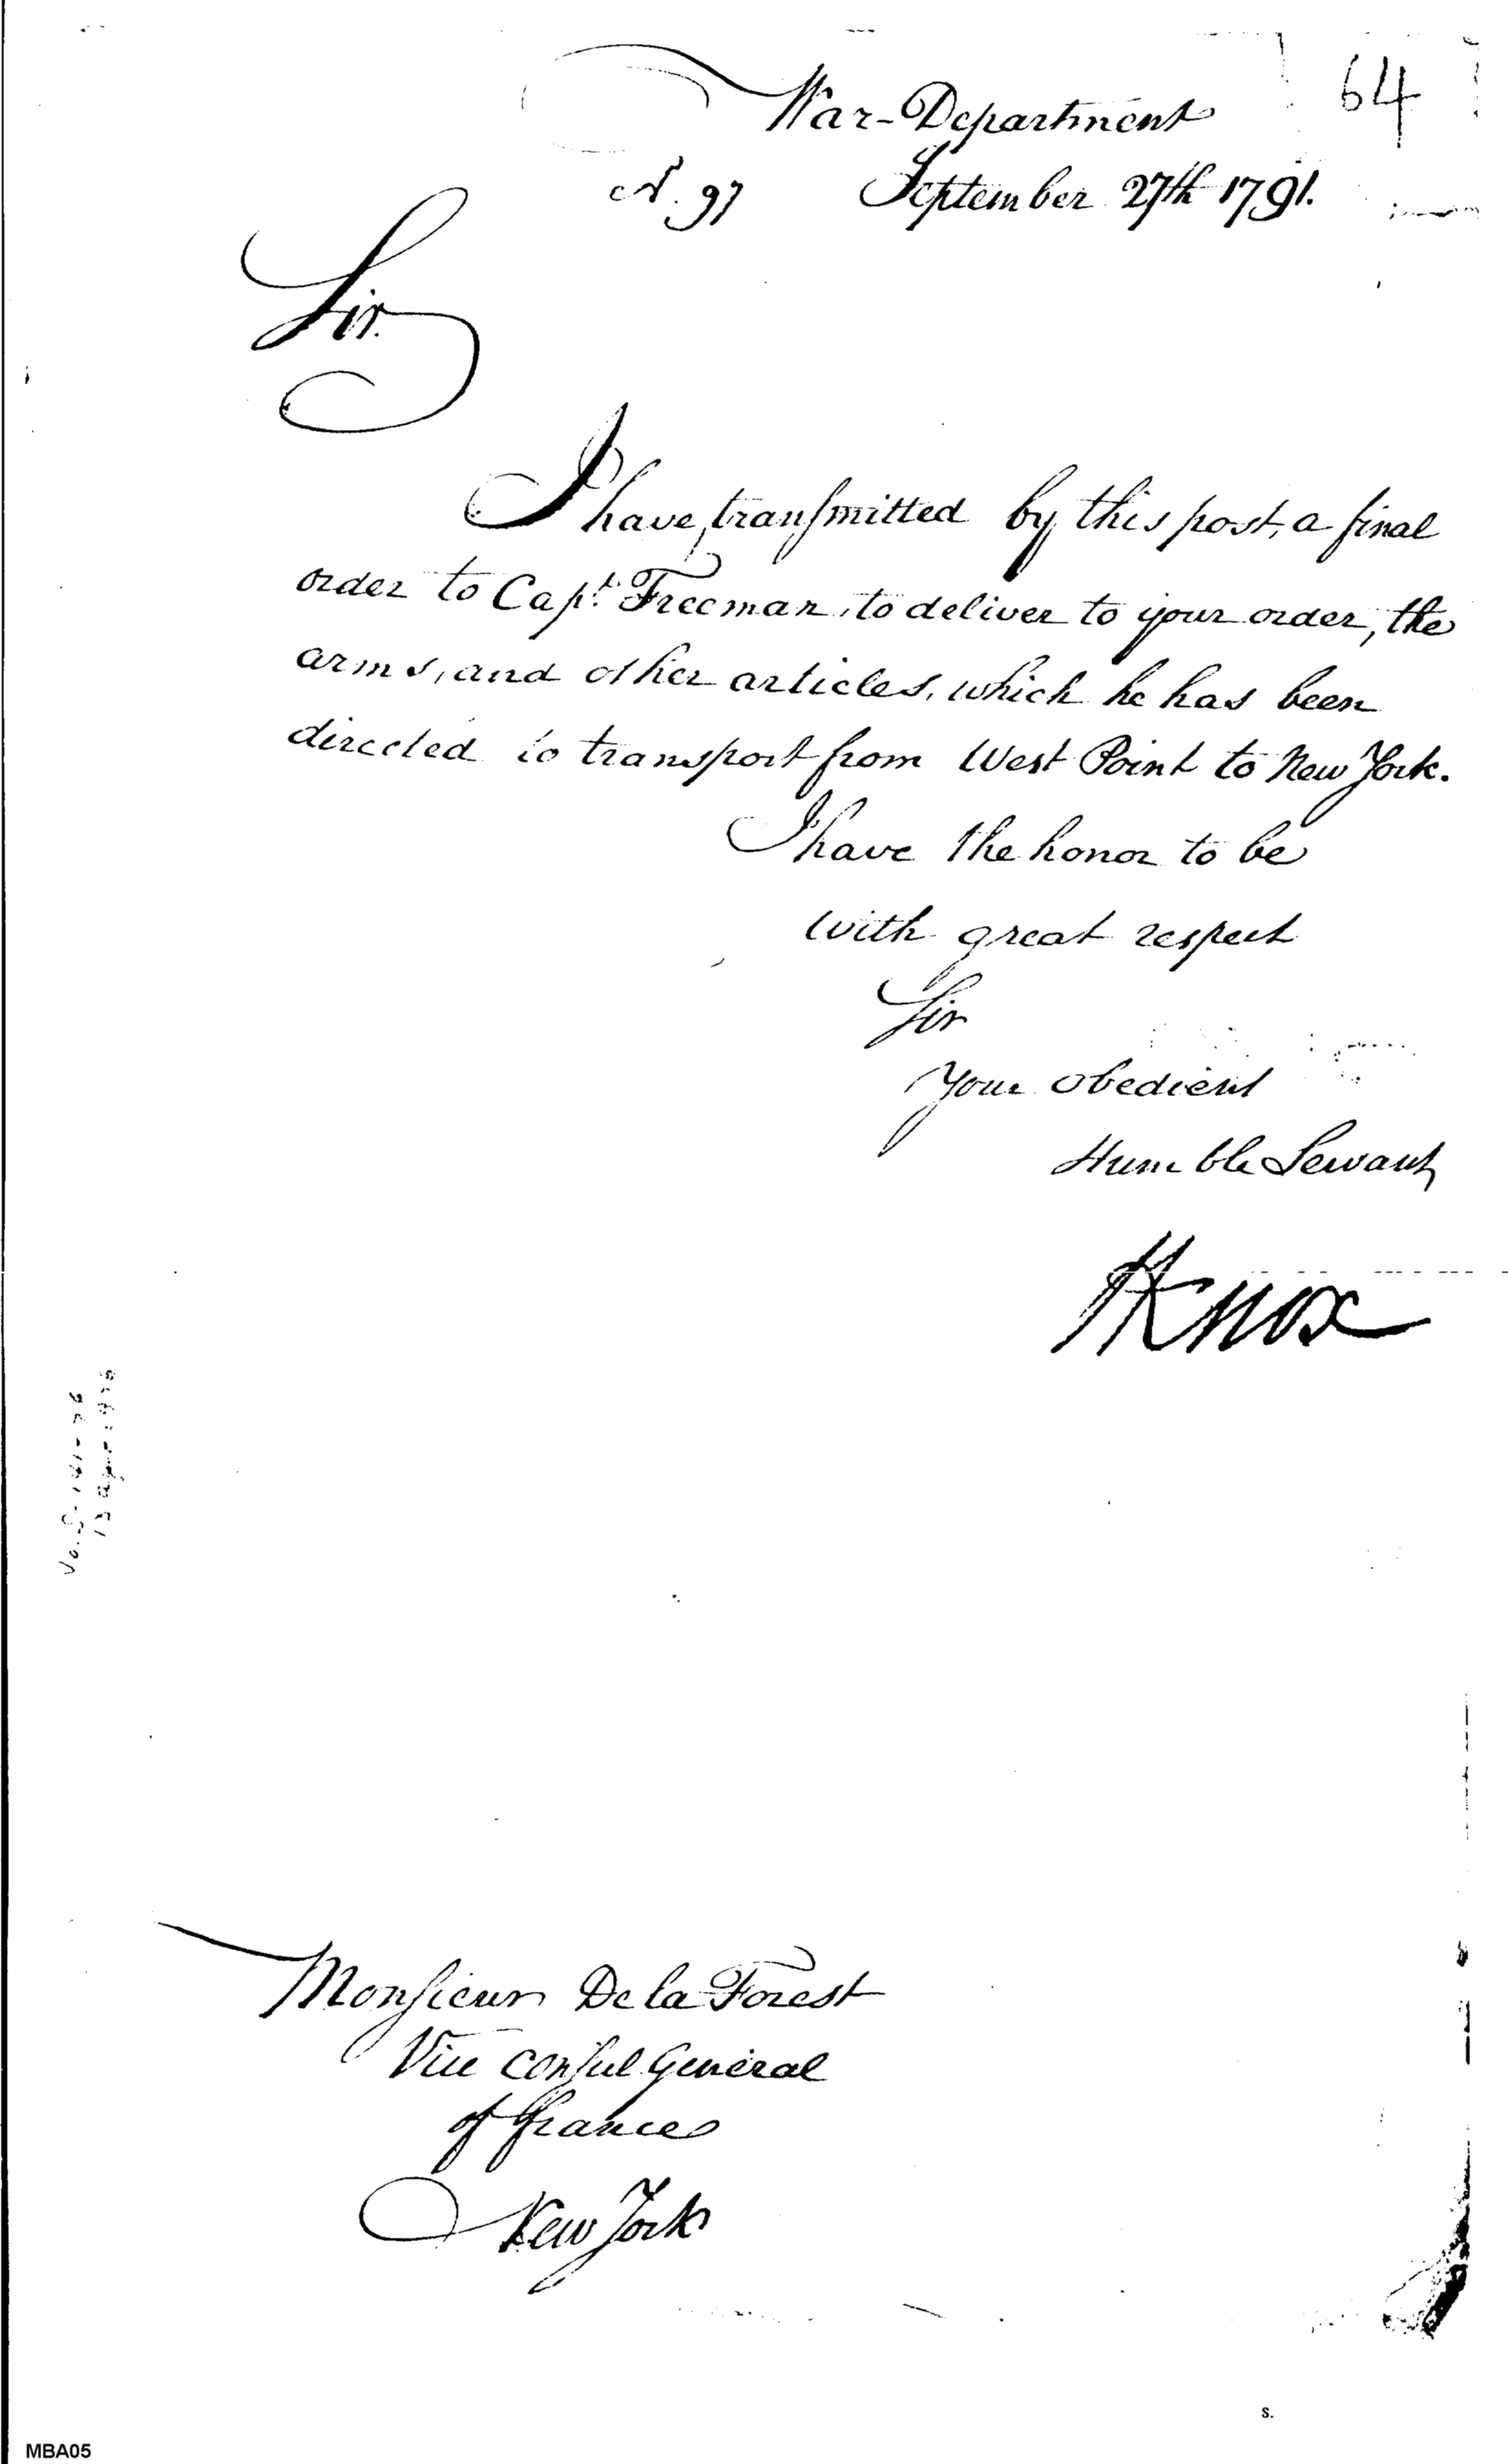 64
War-Department
N. 97 September 27th 1791.
Sir.
I have, transmitted by this post, a final
order to Capt. Freeman, to deliver to your order, the
arms, and other articles, which he has been
directed to transport from West Point to New York.
I have the honor to be
with great respect
Sir
Your obedient
Humble Servant
HKnox
Monsieur De la Forest
Vice Consul General
of france
New York
s.
MBA05